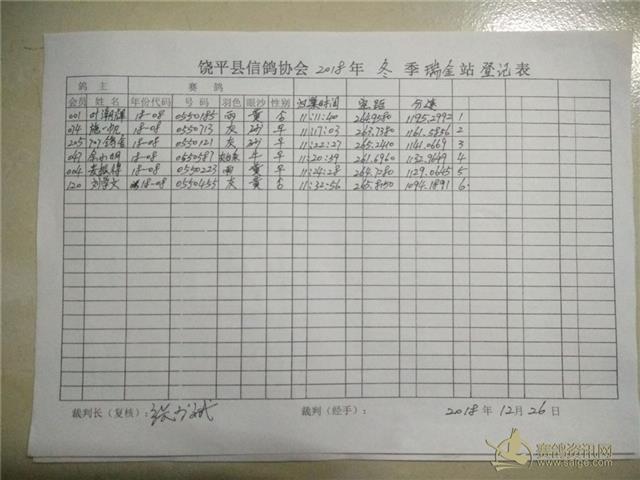 饶平县信鸽协会 2018 年 冬 季 瑞金站 登记表
鸽 主 赛 鸽
会员 姓 名 年份代码 号 码 羽色 眼沙 性别 空距 分速
001 18-08 0550185 雨 黄 11:11:40 264.9580 1195.2992 1
074 18-08 0550713 灰 砂 11:17:03 263.7380 1161.5856 2
205 18-08 0550121 灰 砂 11:22:27 265.2410 1141.0669 3
047 18-08 0650587 11:20:39 261.6960 1132.9649 4
004 18-08 0550223 雨 黄 11:24:28 264.7280 1129.0645 5
120 刘学文 18-08 0550455 灰 黄 11:32:56 265.8050 1094.1891 6
裁判长（复核）： 裁判（经手）： 2018 年 12 月 26 日
赛鸽资讯网
www.saige.com